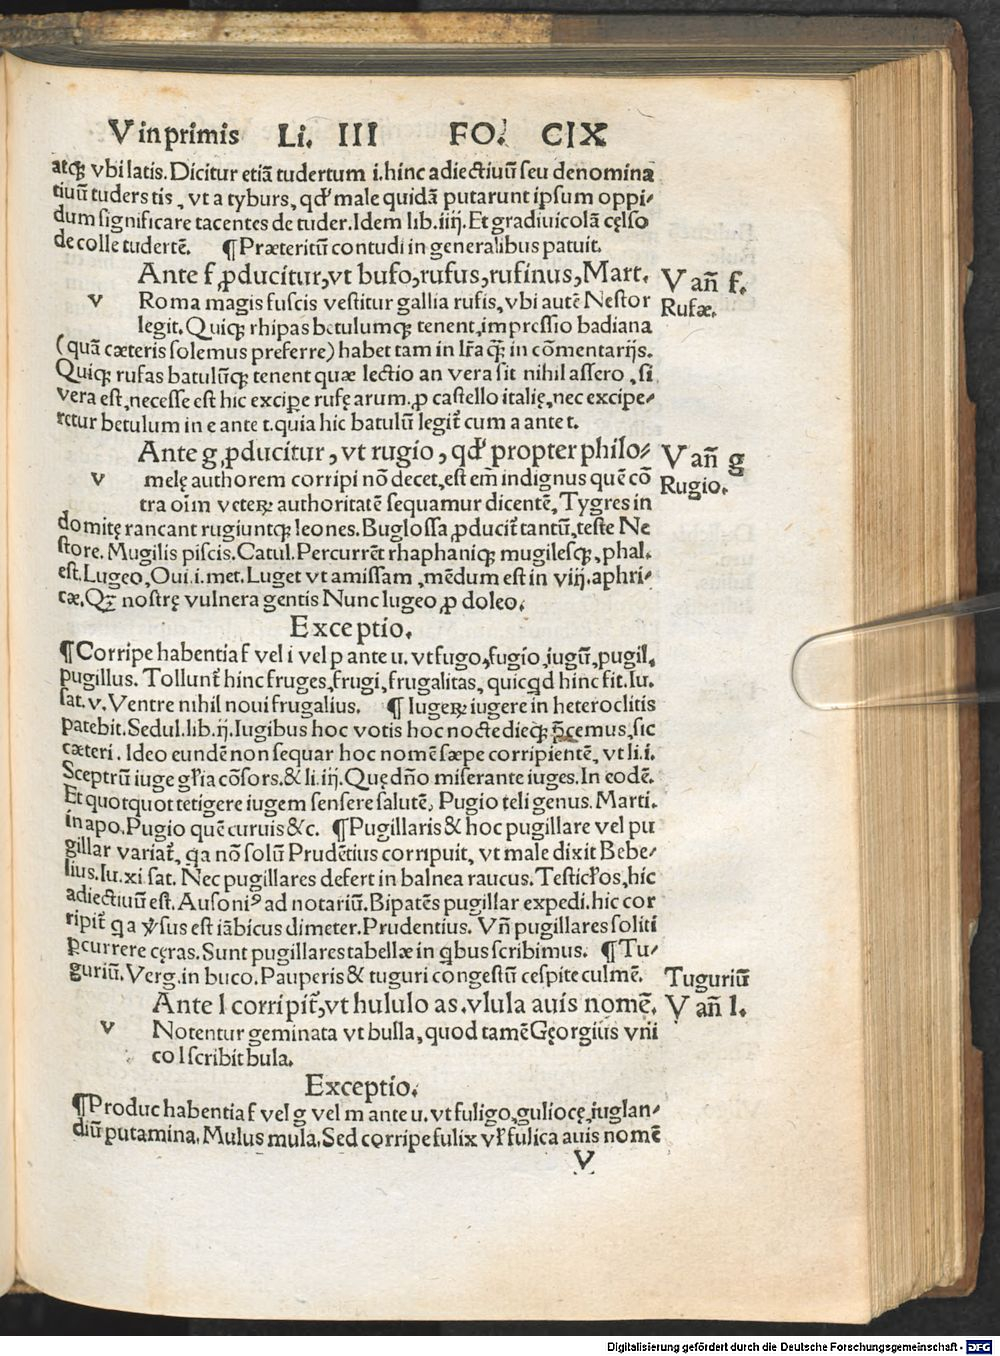 V in primis Li. III FO. CIX
atqꝫ vbi latis. Dicitur etiã tudertum i. hinc adiectiuũ seu denomina
tiuũ tuders tis, vt a tyburs, qđ male quidã putarunt ipsum oppi-
dum significare tacentes de tuder. Idem lib. iiij. Et gradiuicolã cęlso
de colle tudertẽ. ¶ Præteritũ contudi in generalibus patuit.
Ante f ꝓducitur, vt bufo, rufus, rufinus, Mart. V añ f.
v Roma magis fuscis vestitur gallia rufis, vbi autẽ Nestor Rufæ.
legit. Quiqꝫ rhipas betulumqꝫ tenent, impressio badiana
(quã cæteris solemus preferre) habet tam in lr̃a qꝫ̃ in cõmentarijs.
Quiqꝫ rufas batulũqꝫ tenent quæ lectio an vera sit nihil assero, si
vera est, necesse est hic excipe rufę arum. ꝓ castello italię, nec excipe-
retur betulum in e ante t. quia hic batulũ legit̃ cum a ante t.
Ante g ꝓducitur, vt rugio, qđ propter philo- V añ g
v melę authorem corripi nõ decet, est em̃ indignus quẽ cõ Rugio.
tra oĩm veteꝝ authoritatẽ sequamur dicentẽ, Tygres in
domitę rancant rugiuntqꝫ leones. Buglossa ꝓducit̃ tantũ, teste Ne
store. Mugilis piscis. Catul. Percurrẽt rhaphaniqꝫ mugilesqꝫ, phal.
est. Lugeo, Oui. i. met. Luget vt amissam, mẽdum est in viij. aphri-
cæ. Qꝫ nostrę vulnera gentis Nunc lugeo ꝓ doleo.
Exceptio.
¶ Corripe habentia f vel i vel p ante u. vt fugo, fugio, iugũ, pugil,
pugillus. Tollunt̃ hinc fruges, frugi, frugalitas, quicqd hinc fit. Iu.
sat. v. Ventre nihil noui frugalius. ¶ Iugeꝝ iugere in heteroclitis
patebit. Sedul. lib. ij. Iugibus hoc votis hoc nocte dieqꝫ p̃cemus, sic
cæteri. Ideo eundẽ non sequar hoc nomẽ sæpe corripientẽ, vt li. i.
Sceptrũ iuge gl̃ia cõsors. & li. iij. Quę dño miserante iuges. In eodẽ.
Et quotquot tetigere iugem sensere salutẽ, Pugio teli genus. Marti.
in apo. Pugio quẽ curuis &c. ¶ Pugillaris & hoc pugillare vel pu
gillar variat̃, qa nõ solũ Prudẽtius corripuit, vt male dixit Bebe-
lius. Iu. xi sat. Nec pugillares defert in balnea raucus. Testicl̃os, hic
adiectiuũ est. Ausoniꝰ ad notariũ. Bipatẽs pugillar expedi. hic cor
ripit̃ qa ṽsus est iãbicus dimeter. Prudentius. Vñ pugillares soliti
ꝑcurrere cęras. Sunt pugillares tabellæ in qbus scribimus. ¶ Tu-
guriũ. Verg. in buco. Pauperis & tuguri congestũ cespite culmẽ. Tuguriũ
Ante l corripit̃, vt hululo as. vlula auis nomẽ. V añ l.
v Notentur geminata vt bulla, quod tamẽ Gęorgius vni
co l scribit bula.
Exceptio.
¶ Produc habentia f vel g vel m ante u. vt fuligo, guliocę, iuglan-
diũ putamina. Mulus mula. Sed corripe fulix vl̃ fulica auis nomẽ
V
Digitalisierung gefördert durch die Deutsche Forschungsgemeinschaft - DFG